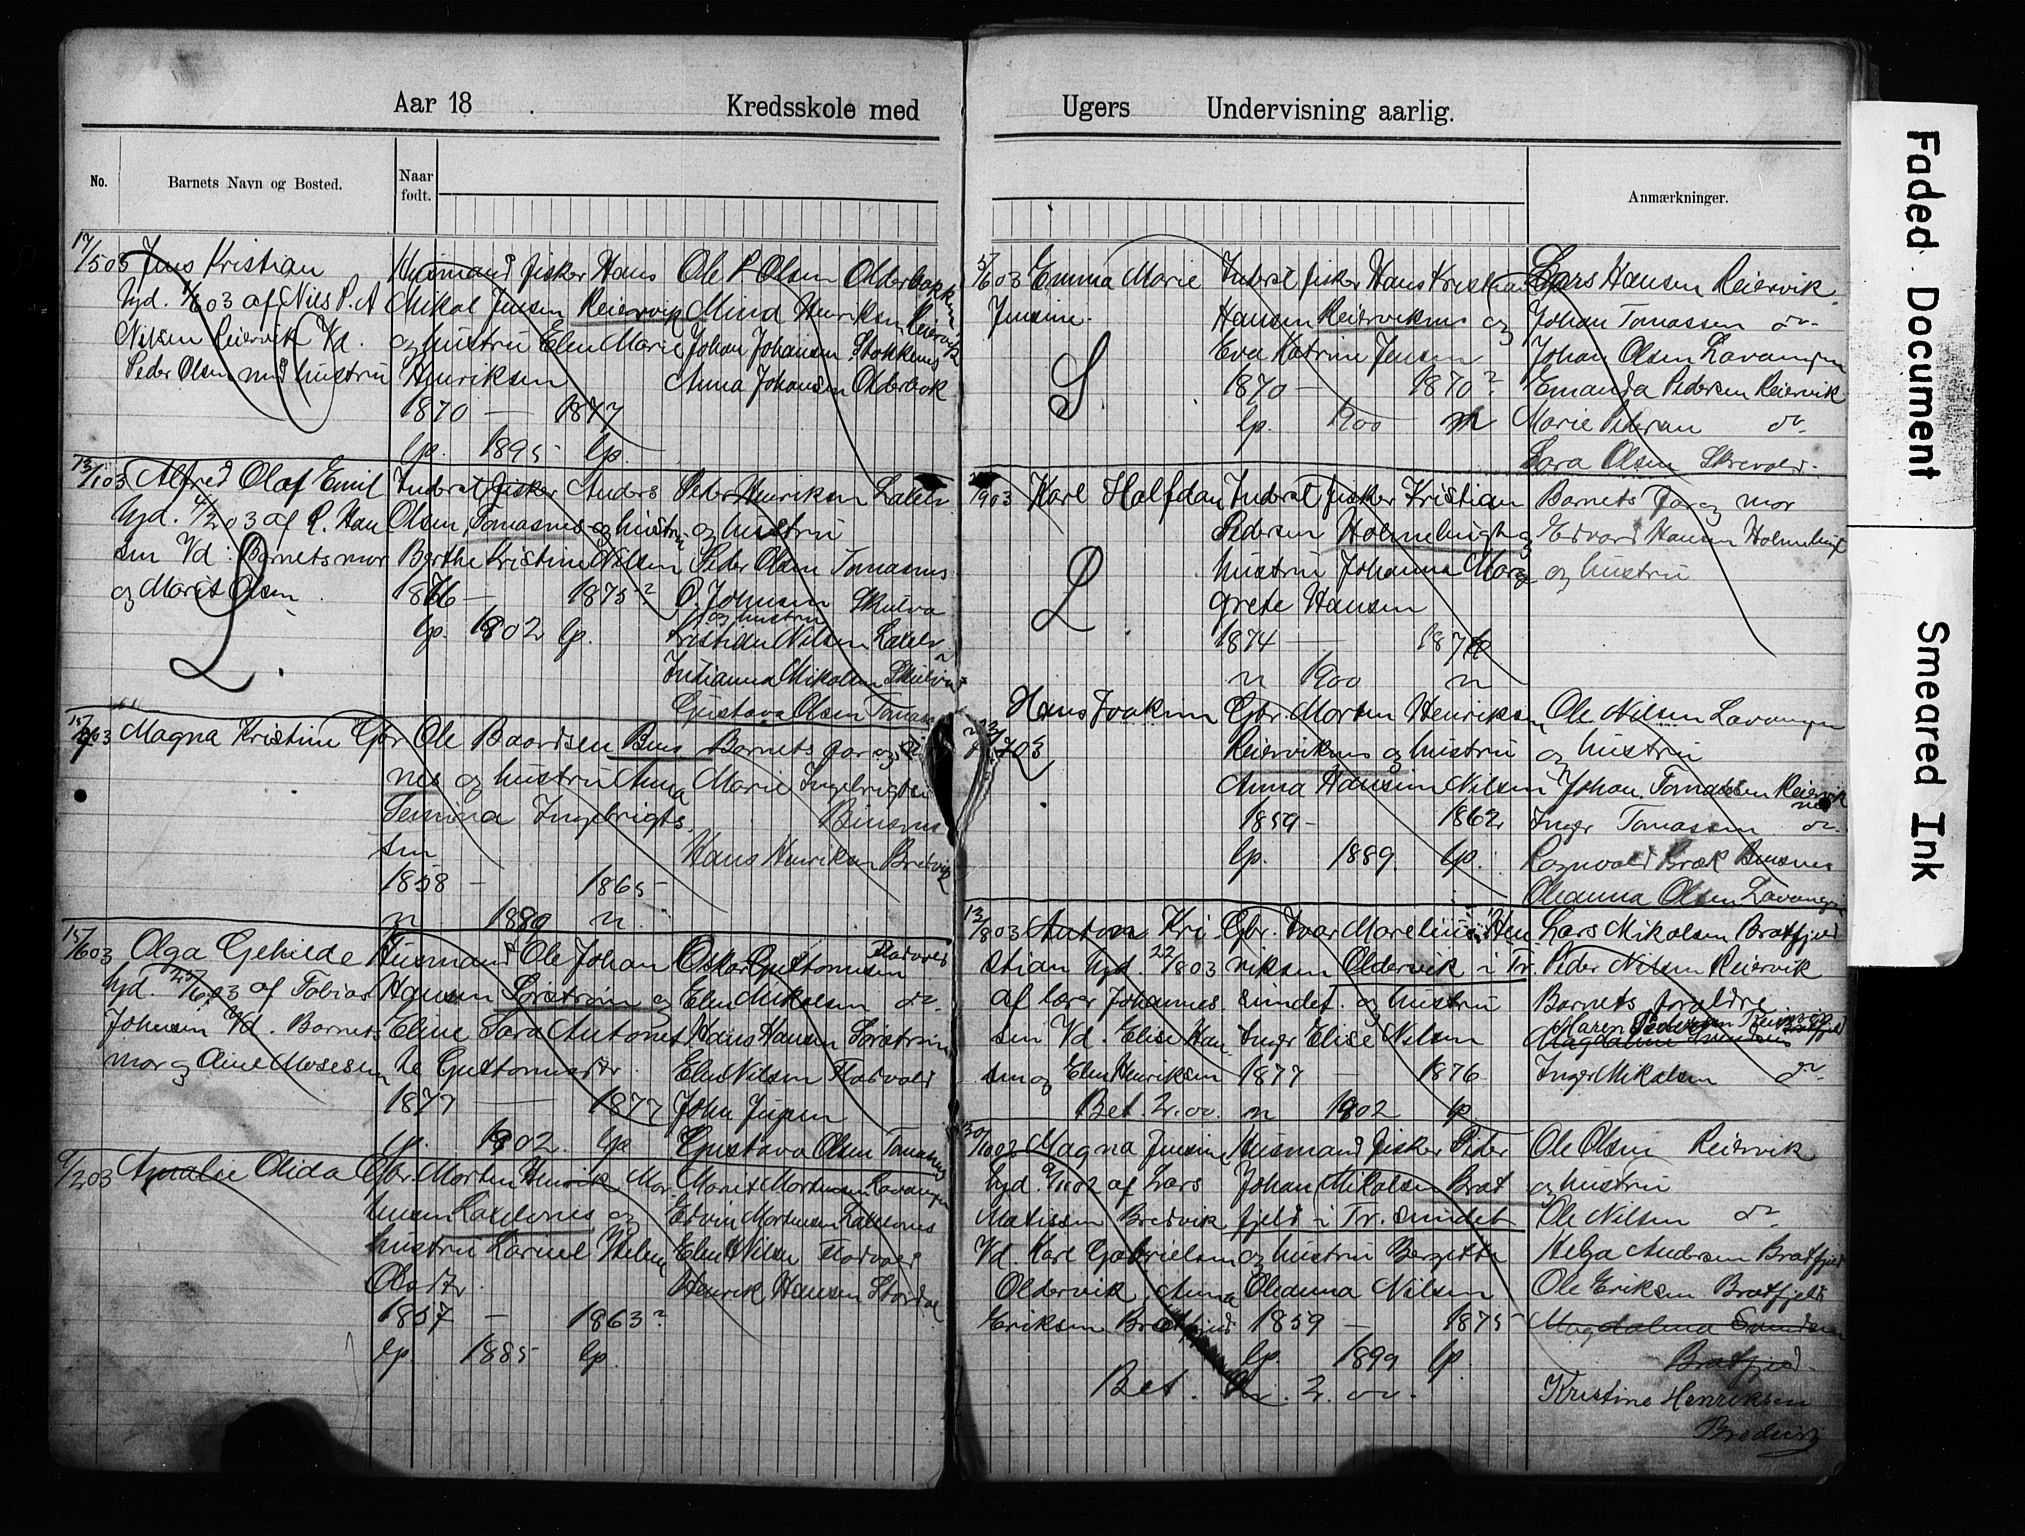 Aar 18 Kredsskole med
No. Barnets Navn og Bosted. Naar født.
17/5 03 Jens Kristian
hjd. 1/6 03 af Nils P. A
Nilsen Reiervik Vd.
Peder Olsen med hustru
Husmand fisker Hans
Mikal Jensen Reiervik
og hustru Elen Marie
Henriksen
1870 — 1877
lp. 1895 lp.
Ole P. Olsen Olderbakken
Mina Henriksen Reiervik
Johan Johansen Stokkenes
Anna Johansen Olderbak
13/1 03 Alfred Olaf Emil
hjd. 4/2 03 af R. Han
sen Vd: Barnets mor
og Marit Olsen
L.
Inderst fisker Anders
Olsen, Tomasnes og hustru
Berthe Kristine Nilsen
1876 — 1875?
lp. 1902 lp.
Peder Henriksen Lakselv
og hustru
Peder Olsen Tomasnes
O. Johnsen Skulva
og hustru
Kristian Nilsen Lakselv
Indianna Mikalsen
Gustava Olsen Tomasn
03 Magna Kristine
Gbr Ole Baardsen Bens
nes og hustru Anna
Ingebrigts
sen
1858 — 1865
n 1889 n
Barnets far og
Marie Ingebrigtsen
Bensnes
Hans Henriksen Bredvik
15/6 03 Olga Gehilde
hjd. 25/6 03 af Tobias
Johnsen Vd. Barnets
mor og Oline Mosesen
Husmand Ole Johan
Hansen Sørstrøm og
Eline Sara Antonet
te Guttormsdtr.
1877 — 1877
lp. 1902. lp
Oskar Guttormsen Fladvold
Elen Mikalsen do
Hans Hansen Sørstrøm
Elen Nilsen Fladvold
John Jupsen
Gustava Olsen Tomasnes
9/2 03 Amalie Olida
Gbr. Morten Henrik Mor
tensen Lakselvnes og
hustru Karine
Olsdtr.
1857 — 1863?
lp. 1885 lp.
Marit Mortensen Lavangen
Edvin Mortensen Lakselvnes
Elen Nilsen Fladvold
Henrik Hansen Stordal
Ugers Undervisning aarlig.
Anmærkninger.
5/6 03 Emma Marie
Jensine.
S.
Inderst fisker Hans Kristian
Hansen Reierviknes og
Eva Katrine Jensen
1870 — 1870?
lp. 1900 n
Lars Hansen Reiervik
Johan Tomassen do
Johan Olsen Lavangen
Emanda Pedersen Reiervik
Marie Pedersen do
Sara Olsen
03 Karl Halfdan
L.
Inderst fisker Kristian
Pedersen Holmebugt og
hustru Johanna Mar
grete Hansen
1874 — 1874
n 1900 n
Barnets far og mor
Edvard Hansen Holmebugt
og hustru
Hans Joakim
23/7 03
Gbr. Morten Henriksen
Reierviknes og hustru
Anna Hansine Nilsen
1859 — 1862
lp. 1889. lp.
Ole Nilsen Lavangen
og hustru
Johan Tomassen Reiervik
nes
Inger Tomassen do
Ragnvald Kræk Bensnes
Oleanna Olsen Lavangen
13/8 03 Anton Kri
stian hjd. 22/8 03
af lærer Johannes
sen Vd. Elise Han
sen og Elen Henriksen
Bet. 2.00.
Gbr. Ivar Marelius Hen
riksen Oldervik i Tr.
sundet. og hustru
Inger Elise Nilsen
1877 — 1876
n 1902 lp
Lars Mikalsen Bratfjeld
Peder Nilsen Reiervik
Barnets forældre
Maren Pedersen
Magdalena Svendsen Bratfjeld
Inger Mikalsen do
30/10 02 Magna Jensine
hjd. 9/11 02 af Lars
Matissen Bredvik
Vd. Karl Gabrielsen
Oldervik, Anna
Eriksen Bratfjeld
Bet. Kr. 2.00.
Husmand fisker Peder
Johan Mikalsen Brat
fjeld i Tr. sundet
og hustru Bergitte
Oleanna Nilsen
1859 — 1875
lp. 1899 lp.
Ole Olsen Reiervik
og hustru
Ole Nilsen do
Helga Andersen Bratfjeld
Ole Eriksen Bratfjeld
Magdalena Svendsen
Bratfjeld
Kristine Henriksen
Bredvik
Faded Document
Smeared Ink